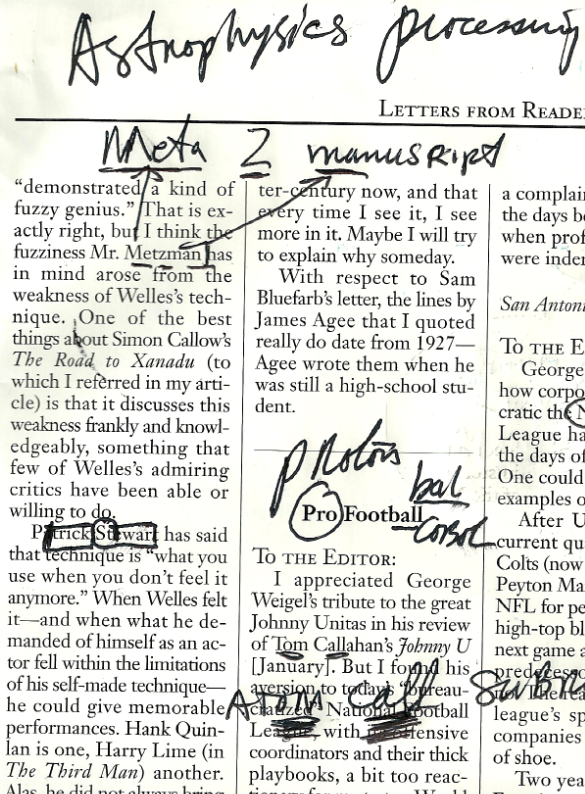 Astrophysics processing
LETTERS FROM READE
Meta 2 manuscript
"demonstrated a kind of
fuzzy genius." That is ex-
actly right, but I think the
fuzziness Mr. Metzman has
in mind arose from the
weakness of Welles's tech-
nique. One of the best
things about Simon Callow's
The Road to Xanadu (to
which I referred in my arti-
cle) is that it discusses this
weakness frankly and knowl-
edgeably, something that
few of Welles's admiring
critics have been able or
willing to do.
Patrick Stewart has said
that technique is "what you
use when you don't feel it
anymore." When Welles felt
it—and when what he de-
manded of himself as an ac-
tor fell within the limitations
of his self-made technique—
he could give memorable
performances. Hank Quin-
lan is one, Harry Lime (in
The Third Man) another.
Alas, he did not always bring
ter-century now, and that
every time I see it, I see
more in it. Maybe I will try
to explain why someday.
With respect to Sam
Bluefarb's letter, the lines by
James Agee that I quoted
really do date from 1927—
Agee wrote them when he
was still a high-school stu-
dent.
Protons
bal
Pro Football
TO THE EDITOR:
I appreciated George
Weigel's tribute to the great
Johnny Unitas in his review
of Tom Callahan's Johnny U
[January]. But I found his
aversion to today's "bureau-
cratized" National Football
League, with offensive
Atom call
coordinators and their thick
playbooks, a bit too reac-
a complain
the days be
when prof
were inde
San Antoni
TO THE E
George
how corpo
cratic the N
League ha
the days of
One could
examples o
After U
current qu
Colts (now
Peyton Ma
NFL for pe
high-top bl
next game a
predecesso
league's sp
companies
of shoe.
Two yea